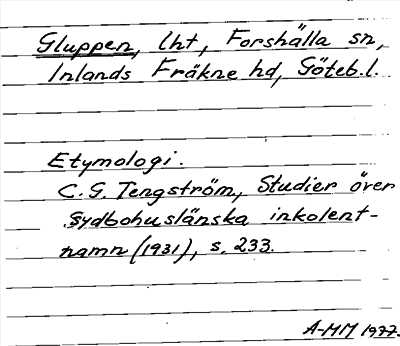 Gluppen, lht, Forshälla sn,
Inlands Fräkne hd, Göteb.l.
Etymologi.
C. G. Tengström, Studier över
sydbohuslänska inkolent-
namn (1931), s. 233.
A-MM 1977.